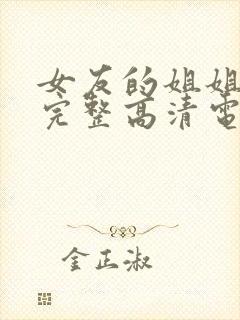 女友的姐姐
完整高清电
金正淑